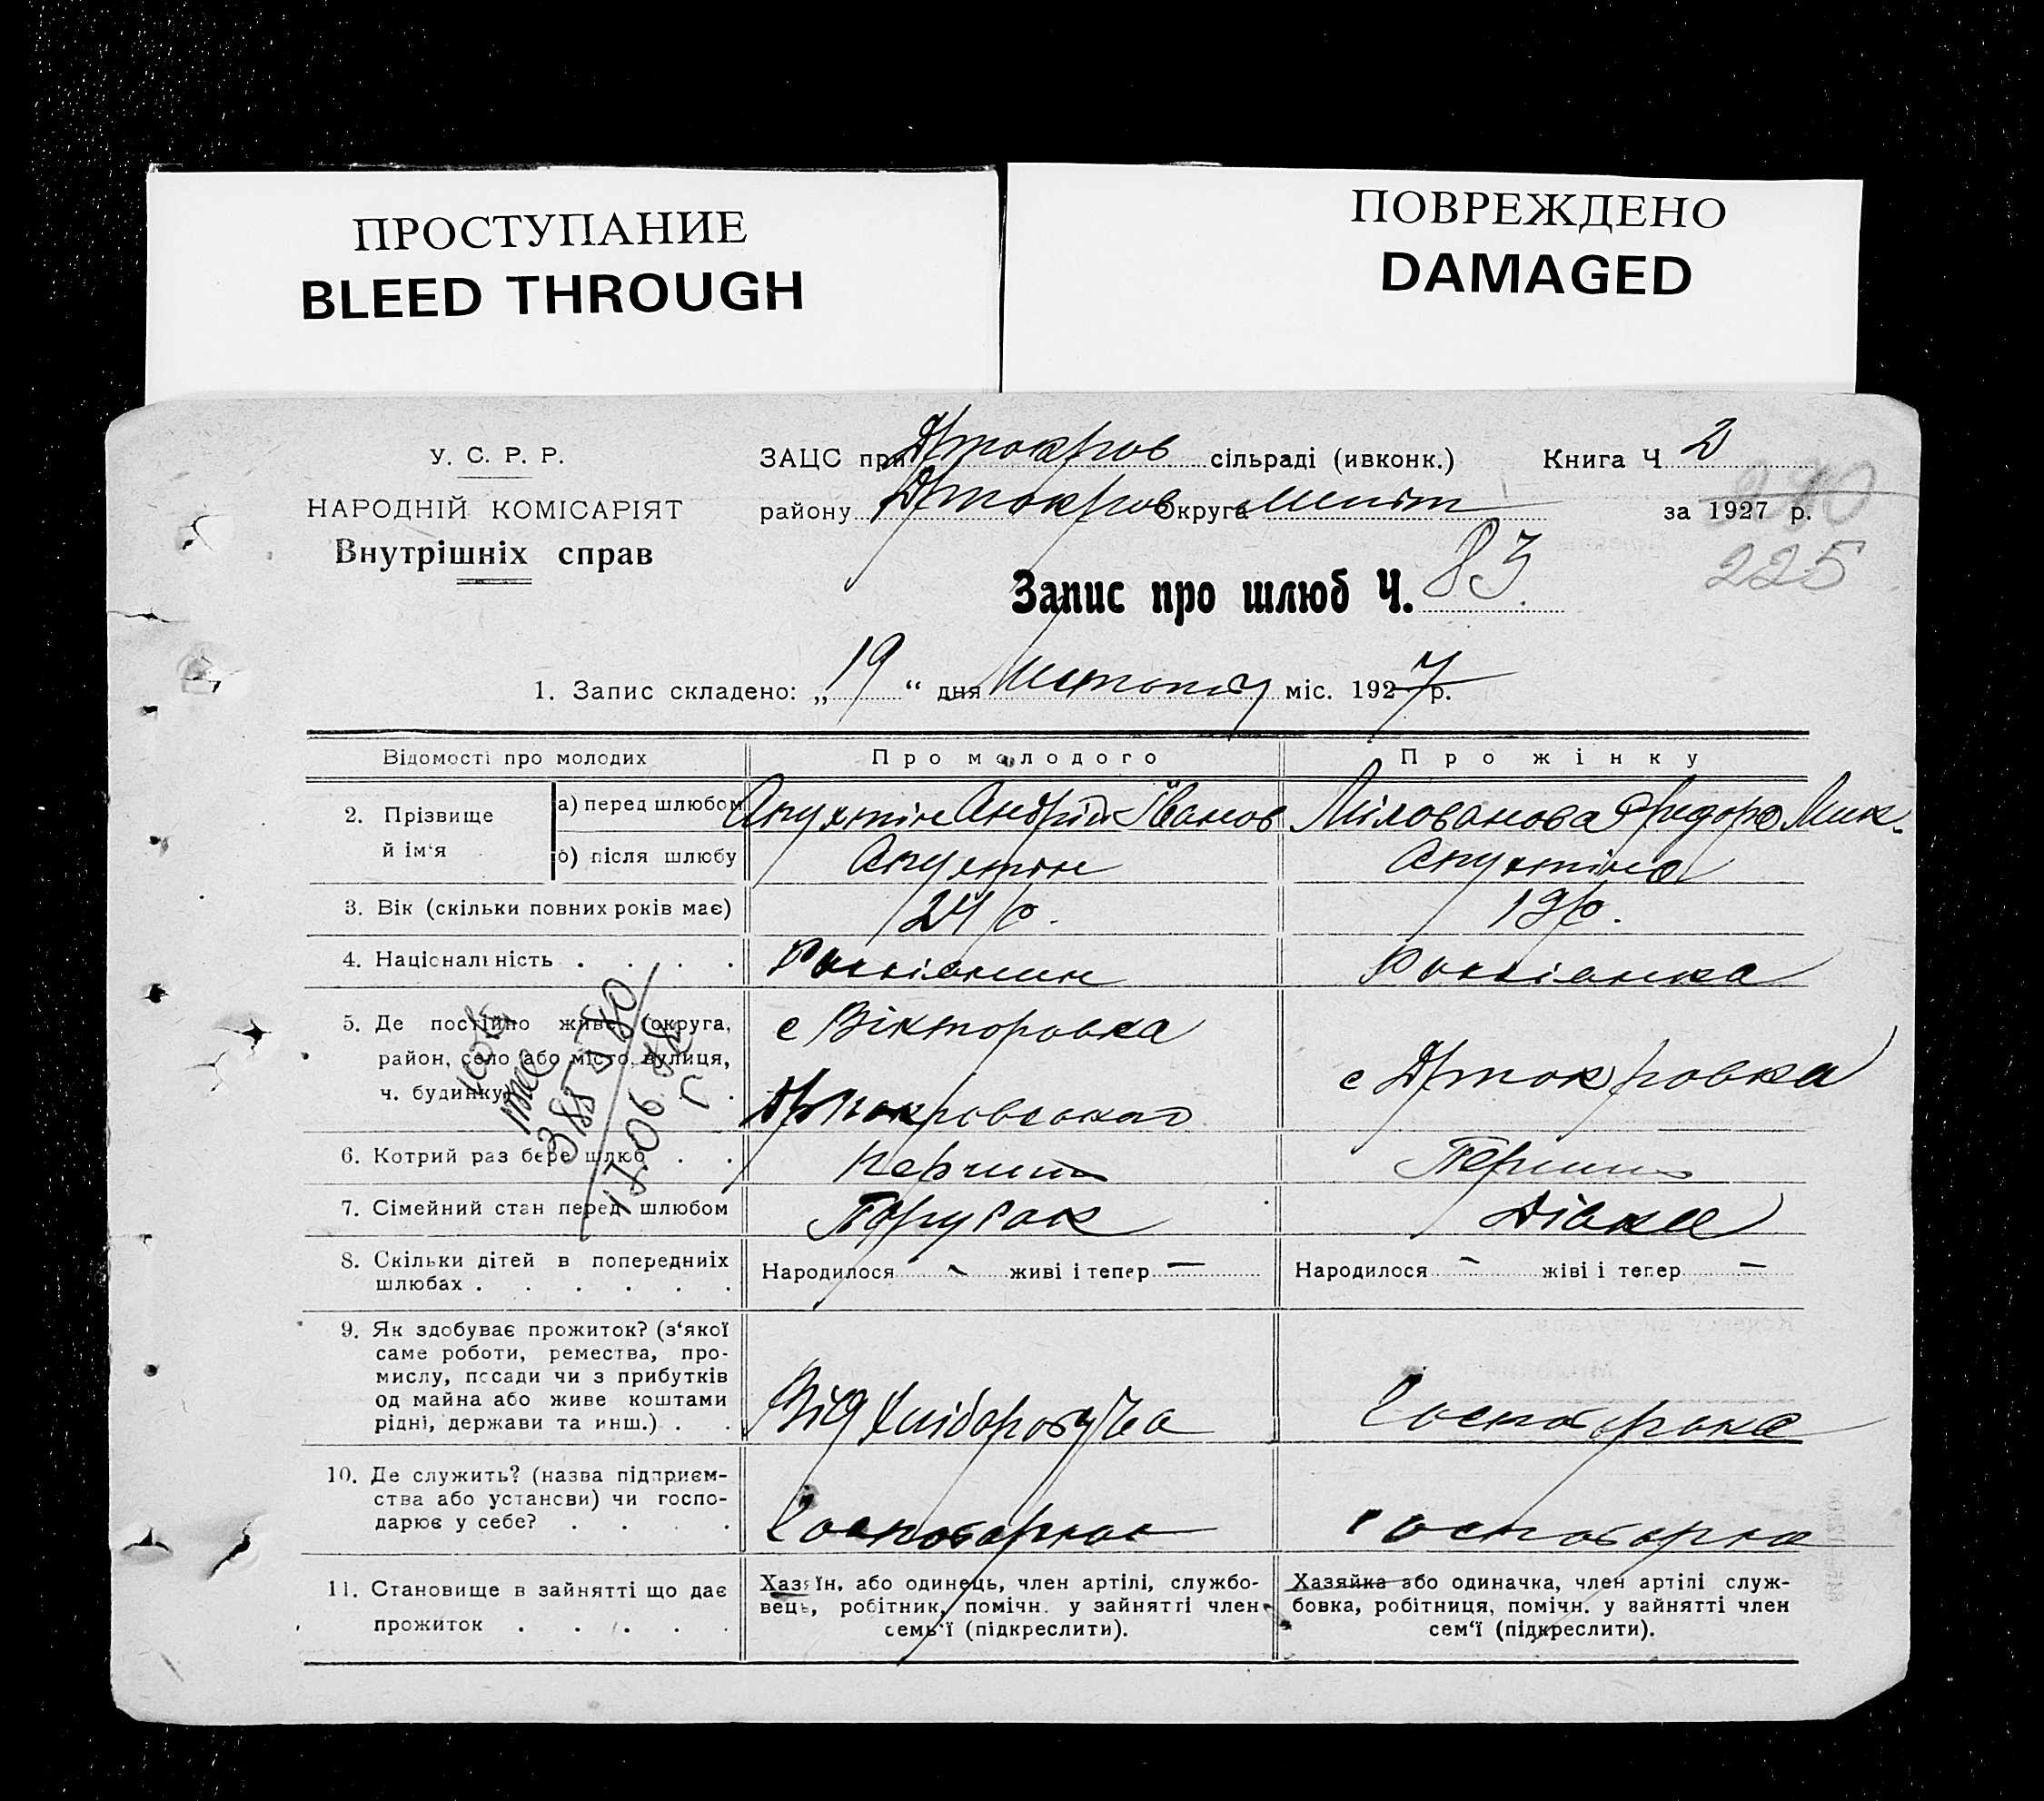 ПРОСТУПАНИЕ
BLEED THROUGH
ПОВРЕЖДЕНО
DAMAGED
У. С. Р. Р.
НАРОДНІЙ КОМІСАРІЯТ
Внутрішніх справ
ЗАЦС при сільраді (ивконк.) Книга Ч 2
району Округа за 1927 р.
210
225
Запис про шлюб Ч. 83
1. Запис складено: „ 19 “ дня міс. 1927 р.
Відомості про молодих
Про молодого
Про жінку
2. Прізвище й ім‘я
а) перед шлюбом
Апухтін Андрій Іванов
Мілованова Мик.
б) після шлюбу
Апухтін
Апухтіна
3. Вік (скільки повних років має)
24 р.
19 р.
4. Національність . . . .
Россіянин
Россіянка
5. Де постійно живе (округа,
район, село або місто, вулиця,
ч. будинку)
с Вікторовка
с
385
6. Котрий раз бере шлюб . .
перший
Перший
7. Сімейний стан перед шлюбом
Парубок
Дівка
8. Скільки дітей в попередниіх
шлюбах . . . . . .
Народилося - живі і тепер —
Народилося - жіві і тепер —
9. Як здобуває прожиток? (з‘якої
саме роботи, ремества, про-
мислу, посади чи з прибутків
од майна або живе коштами
рідні, держави та инш.) . .
Від
10. Де служить? (назва підприєм-
ства або установи) чи госпо-
дарює у себе? . . . .
11. Становище в зайнятті що дає
прожиток . . . . .
Хазяїн, або одинець, член артілі, службо-
вець, робітник, помічн. у зайнятті член
семь‘ї (підкреслити).
Хазяйка або одиначка, член артілі служ-
бовка, робітниця, помічн. у зайнятті член
сем‘ї (підкреслити).